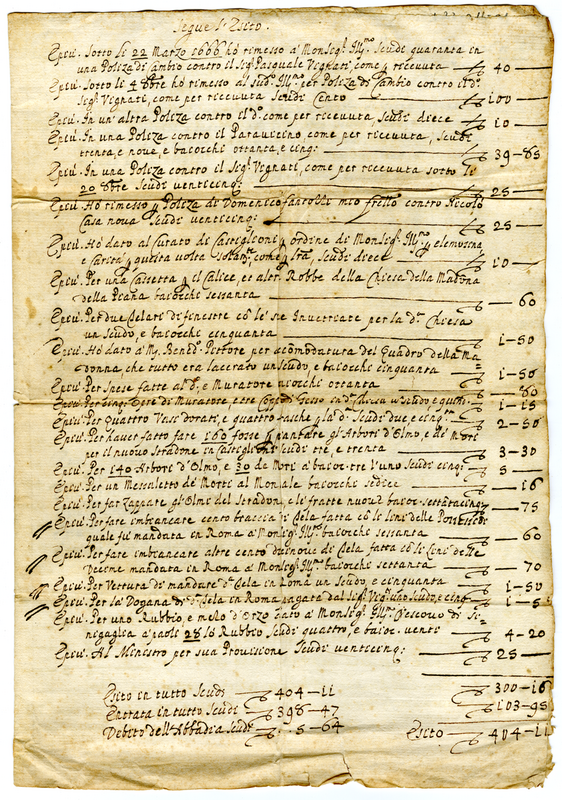 Segue l'Esito.
Epiu. Sotto li 22 Marzo 1666 hò rimesso à Monsigr. Illmo. Scudi quaranta in
una Poliza di cambio contro il Sigr. Pasquale Vignati come p ricevuta — 40 —
Epiu. Sotto li 4 8bre hò rimesso al sudo. Illmo. per Poliza di Cambio contro il do.
Sigr. Vignati, come per ricevuta Scudi Cento — 100 —
Epiu. In un' altra Poliza contro il do. come per ricevuta, Scudi diece — 10 —
Epiu. In una Poliza contro il Paravicino, come per ricevuta, Scudi
trenta, e nove, e baiocchi ottanta, e cinq; — 39-85
Epiu. In una Poliza contro il Sigr. Vignati, come per ricevuta sotto li
20 8bre Scudi venticinq; — 25 —
Epiu. Hò rimesso p Poliza di Domenico mio frello contro Nicolò
Casa nova Scudi venticinq; — 25 —
Epiu. Hò dato al Curato di Castiglioni p ordine di Monsigr. Illmo. p elemosina
e Carità p questa volta come p Scudi diece — 10 —
Epiu. Per una Cassetta p il Calice, et altre Robbe della Chiesa della Madona
della Piana baiocchi sessanta — 60
Epiu. Per due Telari di finestre cò le sue Invetriate per la da. Chiesa
un Scudo, e baiocchi cinquanta — 1-50
Epiu. Hò dato à Mo. Bendo. Pittore per acomodatura del Quadro della Ma
donna, che tutto era lacerato un Scudo, e baiocchi cinquanta — 1-50
Epiu. Per Spese fatte al do. e Muratore baiocchi ottanta — 80
Epiu. Per cinq; Opere di Muratore, e tre Gesso un Scudo e — 1-15
Epiu. Per quattro Vasi dorati, e quattro p la da. Scudi due, e cinqta. — 2-50
Epiu. Per haver fatto fare 160 fosse p piantare gl'Arbori d'Olmo, e de Mori
per il nuovo Stradone in Castiglioni Scudi trè, e trenta — 3-30
Epiu. Per 140 Arbori d'Olmo, e 30 de Mori à baioc. tre l'uno Scudi cinq; — 5 —
Epiu. Per un Mazzoletto de Mortì al Moniale baiocchi sedice — 16
Epiu. Per far Zappare gl'Olmi del Stradon, e le fratte nuove baioc. settantacinq; — 75
Epiu. Per fare imbiancare cento braccia di Tela fatta cò li Lini delle
quale fù mandata in Roma à Monsigr. Illmo. baiocchi sessanta — 60
Epiu. Per fare imbiancare altre cento di Tela fatta cò li Lini delle
Decime mandata in Roma à Monsigr. Illmo. baiocchi settanta — 70
Epiu. Per Vettura di mandare da. Tela in Roma un Scudo, e cinquanta — 1-50
Epiu. Per la Dogana di da. Tela in Roma pagata dal Sigr. Vignati uno Scudo e cinq; — 1-5
Epiu. Per uno Rubbio, e mezo d'Orzo dato à Monsigr. Illmo. Vescovo di Si
nigaglia à paoli 28 lo Rubbio Scudi quattro, e baioc. venti — 4-20
Epiu. Al Ministro per sua Provisione Scudi venticinq; — 25 —
Esito in tutto Scudi — 404-11
300-16
Entrata in tutto Scudi — 398-47
103-95
Debito dell'Abbadia Scudi — 5-64
Esito — 404-11